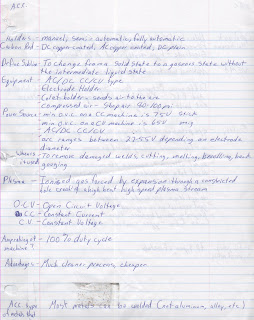 Acr
Holders - manual, semi-automatic, fully automatic
Carbon Rod - DC copper coated, AC copper coated, DC plain
Define Sublime - To change from a solid state to a gaseous state without
the intermediate liquid state
Equipment - AC/DC CC/CV type
Electrode Holder
air to the arc
compressed air - 80-100 psi
Power Source - min O.C.V. on a CC machine is 75V
min O.C.V. on a CV machine is 65V
- AC/DC CC/CV
arc ranges between 22-55V depending on electrode
diameter
- To remove damaged welds, cutting, beveling,
gouging
Plasma - Ionized gas forced by expansion through a constricted
high speed plasma stream
O.C.V - Open Circuit Voltage
CC - Constant Current
C.V - Constant Voltage
- 100% duty cycle
machine?
Advantages - Much cleaner process, cheaper
type
Most metals can be welded (Not aluminum, alloy, etc)